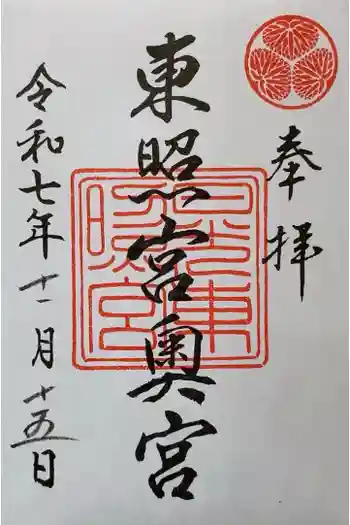 奉拝
東照宮奥宮
令和七年十一月十五日